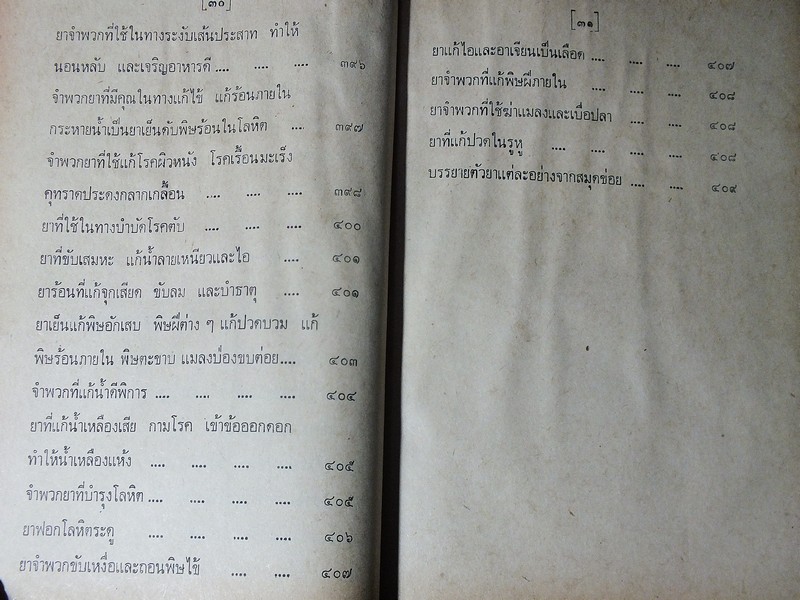 [๓๐]
ยาจำพวกที่ใช้ในทางระงับเส้นประสาท ทำให้
นอนหลับ และเจริญอาหารดี .... .... .... ๓๙๖
จำพวกยาที่มีคุณในทางแก้ไข้ แก้ร้อนภายใน
กระหายน้ำเป็นยาเย็นดับพิษร้อนในโลหิต .... ๓๙๗
จำพวกยาที่ใช้แก้โรคผิวหนัง โรคเรื้อนมะเร็ง
คุทราดประดงกลากเกลื้อน .... .... .... ๓๙๘
ยาที่ใช้ในทางบำบัดโรคตับ .... .... .... ๔๐๐
ยาที่ขับเสมหะ แก้น้ำลายเหนียวและไอ .... ๔๐๑
ยาร้อนที่แก้จุกเสียด ขับลม และบำธาตุ .... ๔๐๑
ยาเย็นแก้พิษอักเสบ พิษฝีต่าง ๆ แก้ปวดบวม แก้
พิษร้อนภายใน พิษตะขาบ แมลงป่องขบต่อย.... ๔๐๓
จำพวกที่แก้น้ำดีพิการ .... .... .... .... ๔๐๔
ยาที่แก้น้ำเหลืองเสีย กามโรค เข้าข้อออกดอก
ทำให้น้ำเหลืองแห้ง .... .... .... .... ๔๐๕
จำพวกยาที่บำรุงโลหิต .... .... .... .... ๔๐๕
ยาฟอกโลหิตระดู .... .... .... .... ๔๐๖
ยาจำพวกขับเหงื่อและถอนพิษไข้ .... .... ๔๐๗
[๓๑]
ยาแก้ไอและอาเจียนเป็นเลือด .... .... .... ๔๐๗
ยาจำพวกที่แก้พิษฝีภายใน .... .... .... ๔๐๘
ยาจำพวกที่ใช้ฆ่าแมลงและเบื่อปลา .... .... ๔๐๘
ยาที่แก้ปวดในรูหู .... .... .... .... ๔๐๘
บรรยายตัวยาแต่ละอย่างจากสมุดข่อย .... .... ๔๐๙